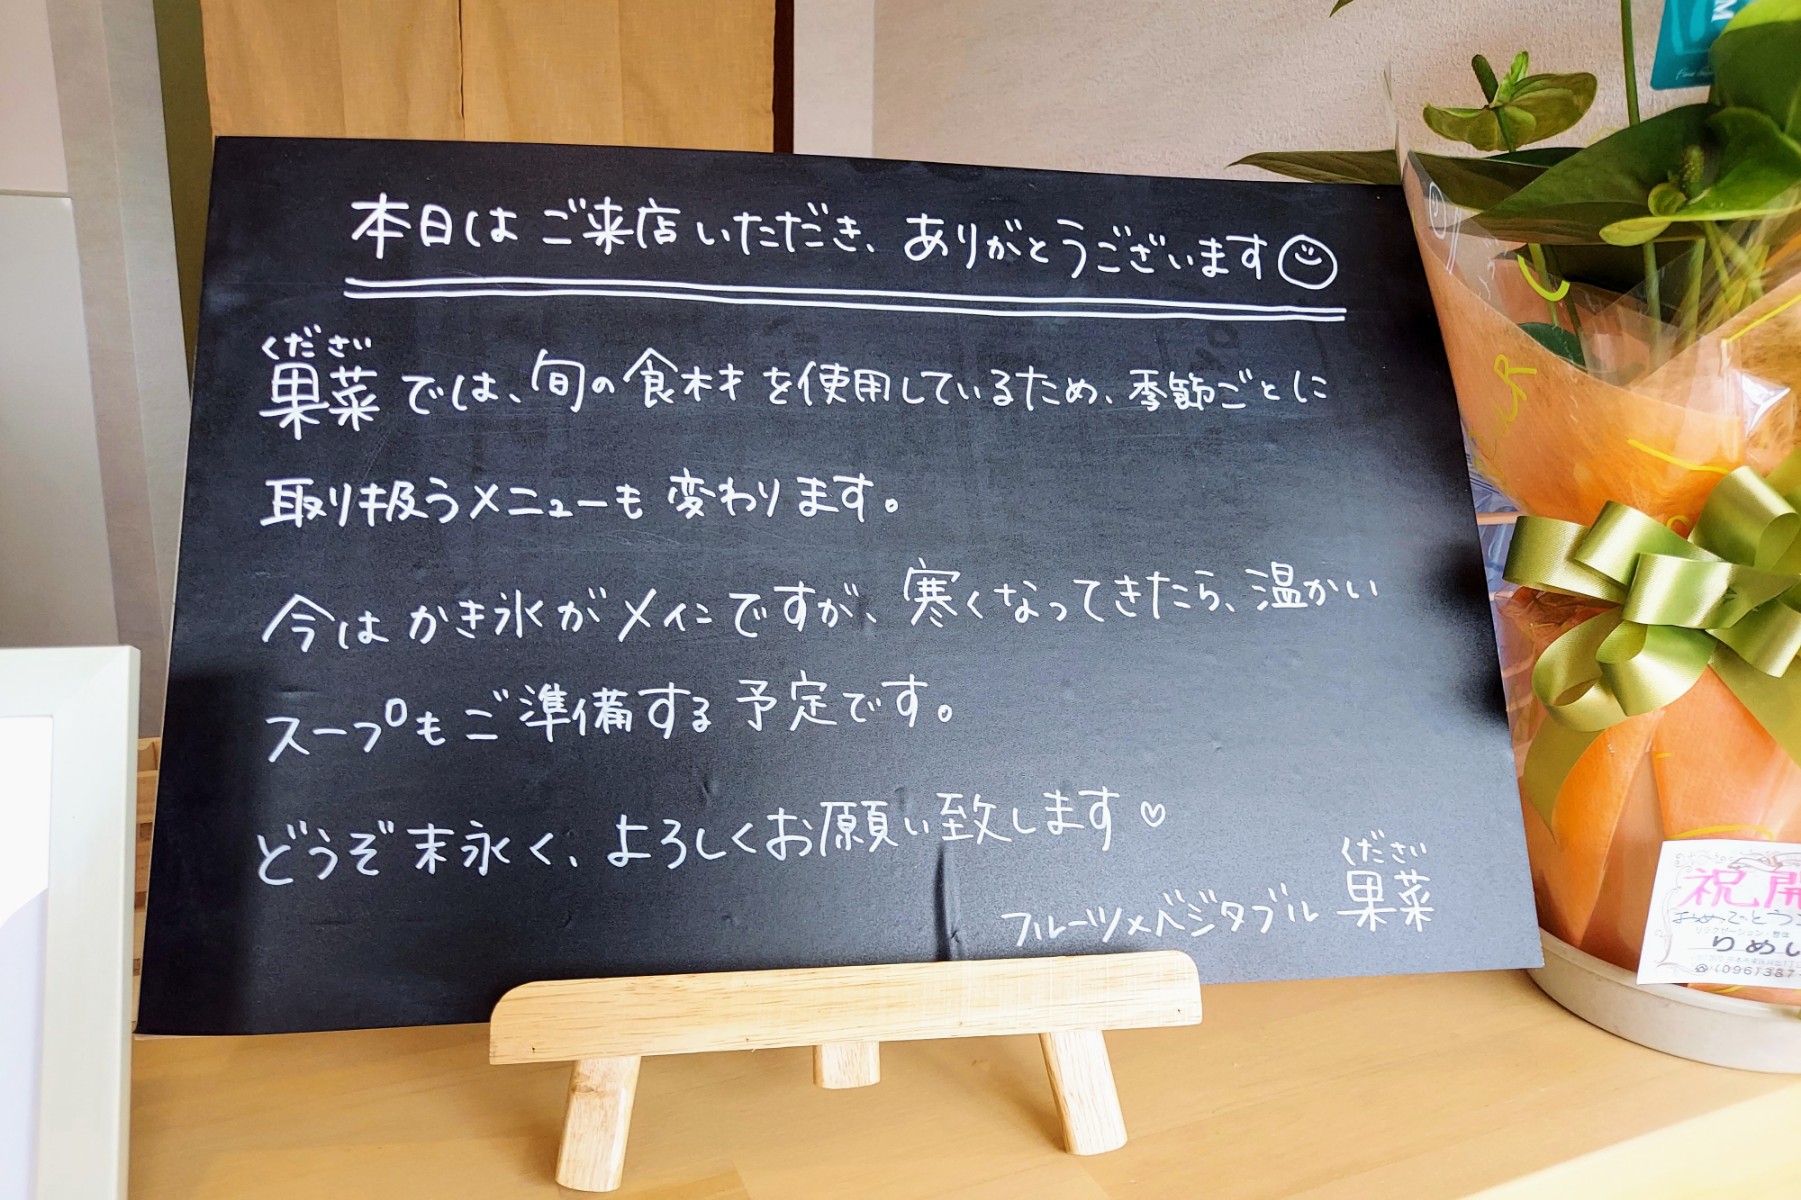 本日はご来店いただき、ありがとうございます
ください
果菜では、旬の食材を使用しているため、季節ごとに
取り扱うメニューも変わります。
今はかき氷がメインですが、寒くなってきたら、温かい
スープもご準備する予定です。
どうぞ末永く、よろしくお願い致します♡
ください
フルーツ×ベジタブル 果菜
祝開
おめでとうご
りめい